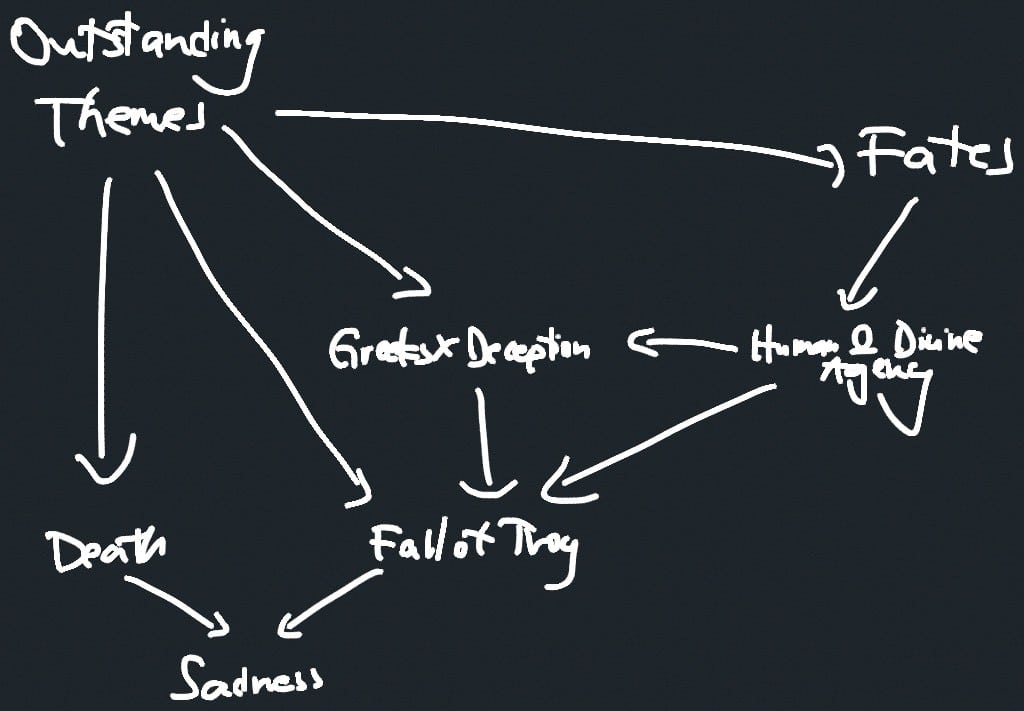 Outstanding
Themes
Fates
Greeks & Deception
Human & Divine
Agency
Death
Fall of Troy
Sadness